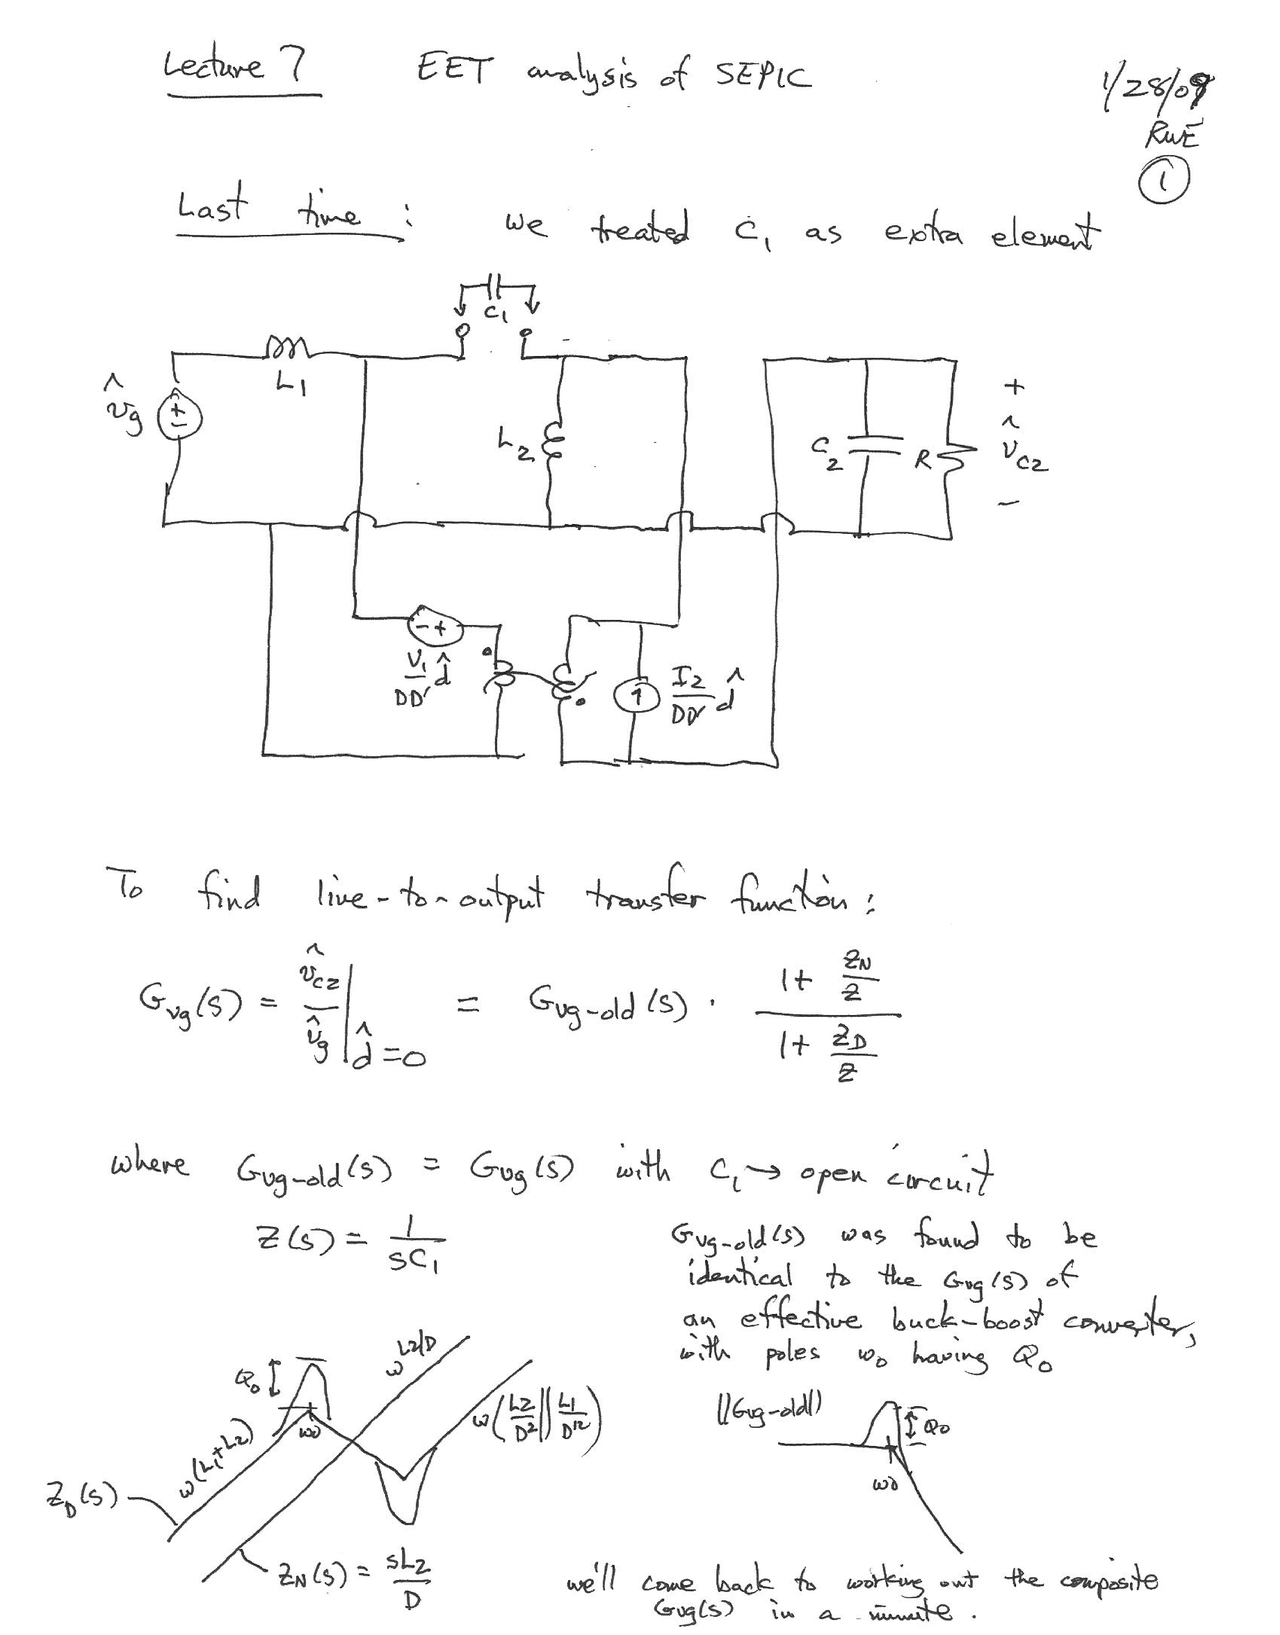 Lecture 7 EET analysis of SEPIC
1/28/09
RWE
1
Last time: we treated C₁ as extra element
C₁
L₁
v̂g
+
−
L₂
C₂
R
+
v̂c2
−
− +
V₁/DD' d̂
I₂/DD' d̂
To find line-to-output transfer function:
Gvg(s) = v̂c2/v̂g |d̂=0 = Gvg-old(s) · (1 + ZN/Z)/(1 + ZD/Z)
where Gvg-old(s) = Gvg(s) with C₁ → open circuit
Z(s) = 1/sC₁
Gvg-old(s) was found to be
identical to the Gvg(s) of
an effective buck-boost converter,
with poles ω₀ having Q₀
Q₀
ω₀
ω(L₁+L₂)
ω L2/D
ω(L2/D² || L1/D'²)
ZD(s)
ZN(s) = sL2/D
||Gvg-old||
Q₀
ω₀
we'll come back to working out the composite
Gvg(s) in a minute.